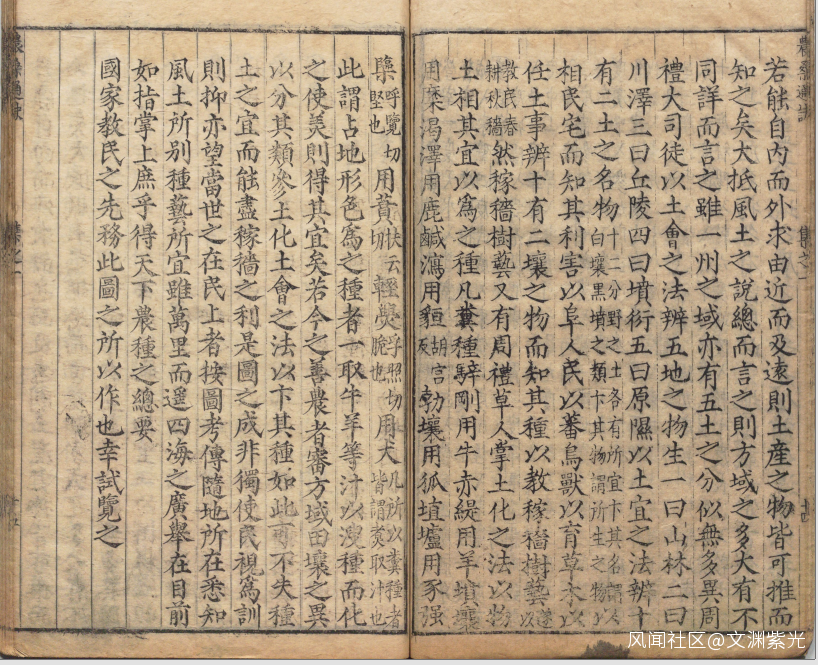 若能自內而外求由近而及遠則土產之物皆可推而
知之矣大抵風土之說總而言之則方域之多大有不
同詳而言之雖一州之域亦有五土之分似無多異周
禮大司徒以土會之法辨五地之物生一曰山林二曰
川澤三曰丘陵四曰墳衍五曰原隰以土宜之法辨十
有二土之名物十二分野之土各有所宜卞其名謂白壤黑墳之類卞其物謂所生之物以
相民宅而知其利害以阜人民以蕃鳥獸以育草木以
任土事辨十有二壤之物而知其種以教稼穡樹藝
教民春耕秋穡然稼穡樹藝又有周禮草人掌土化之法以物
土相其宜以為之種凡糞種騂剛用牛赤緹用羊墳壤
用麋渴澤用鹿鹹瀉用貆胡官反勃壤用狐埴壚用豕强
㯺呼覽切堅也用蕡扶云切輕㷕孚照切脆也用犬凡所以糞種者皆謂煑取汁也
此謂占地形色為之種者一取牛羊等汁以溲種而化
之使美則得其宜矣若今之善農者審方域田壤之異
以分其類參土化土會之法以卞其種如此可不失種
土之宜而能盡稼穡之利是圖之成非獨使民視為訓
則抑亦望當世之在民上者按圖考傳隨地所在悉知
風土所別種藝所宜雖萬里而遥四海之廣舉在目前
如指掌上庶乎得天下農種之總要
國家教民之先務此圖之所以作也幸試覽之
風闻社区@文渊紫光